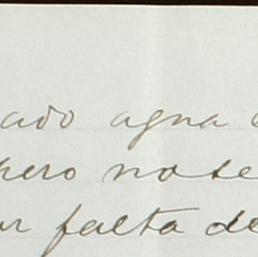 cado agua
pero no se
ur falta de